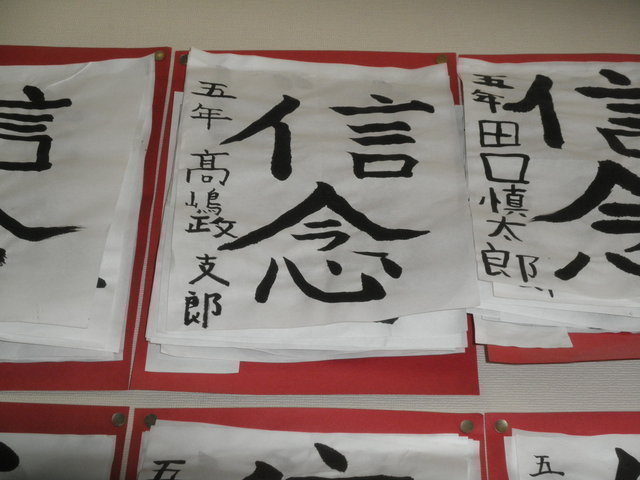 五年 田口慎太郎
信念
五年 高嶋政支郎
信念
五
五